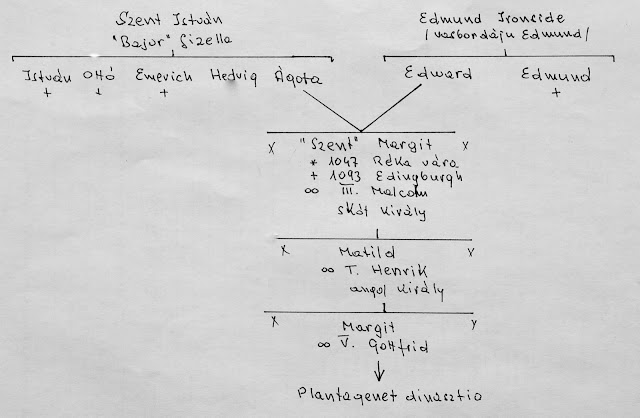 Szent István
"Bajor" Gizella
Edmund Ironside
/vasbordáju Edmund/
István Ottó Emerich Hedvig Ágota
+ + +
Edward Edmund
+
x "Szent" Margit x
* 1047 Réka vára
+ 1093 Edingburgh
∞ III. Malcom
skót király
x Matild x
∞ I. Henrik
angol király
x Margit x
∞ V. Gottfrid
Plantagenet dinasztia